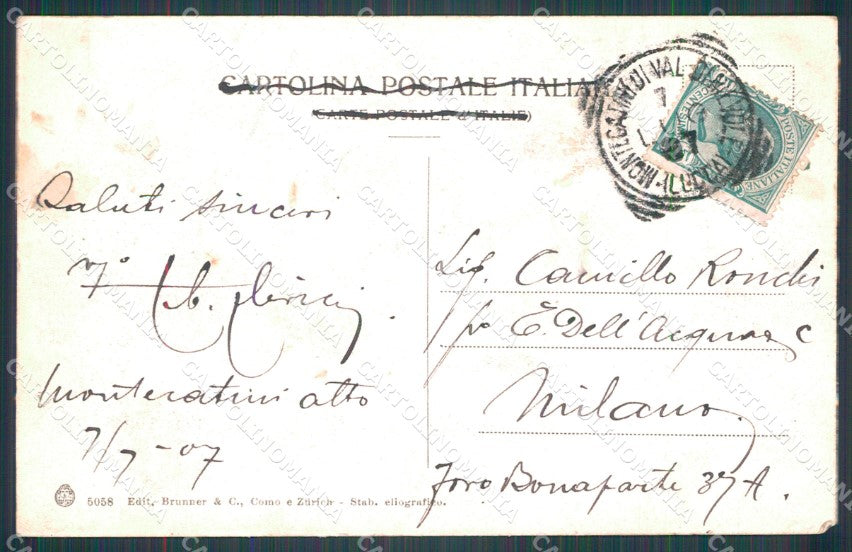 CARTOLINA POSTALE ITALIANA
CARTE POSTALE d'ITALIE
MONTECATINI DI VAL
POSTE ITALIANE
Saluti sinceri
Clerici
Montecatini alto
7/7-07
Sig. Camillo Ronchi
E. Dell'Acqua e C
Milano
Foro Bonaparte 37 A.
5058 Edit. Brunner & C., Como e Zürich - Stab. eliografico.
CARTOLINOMANIA